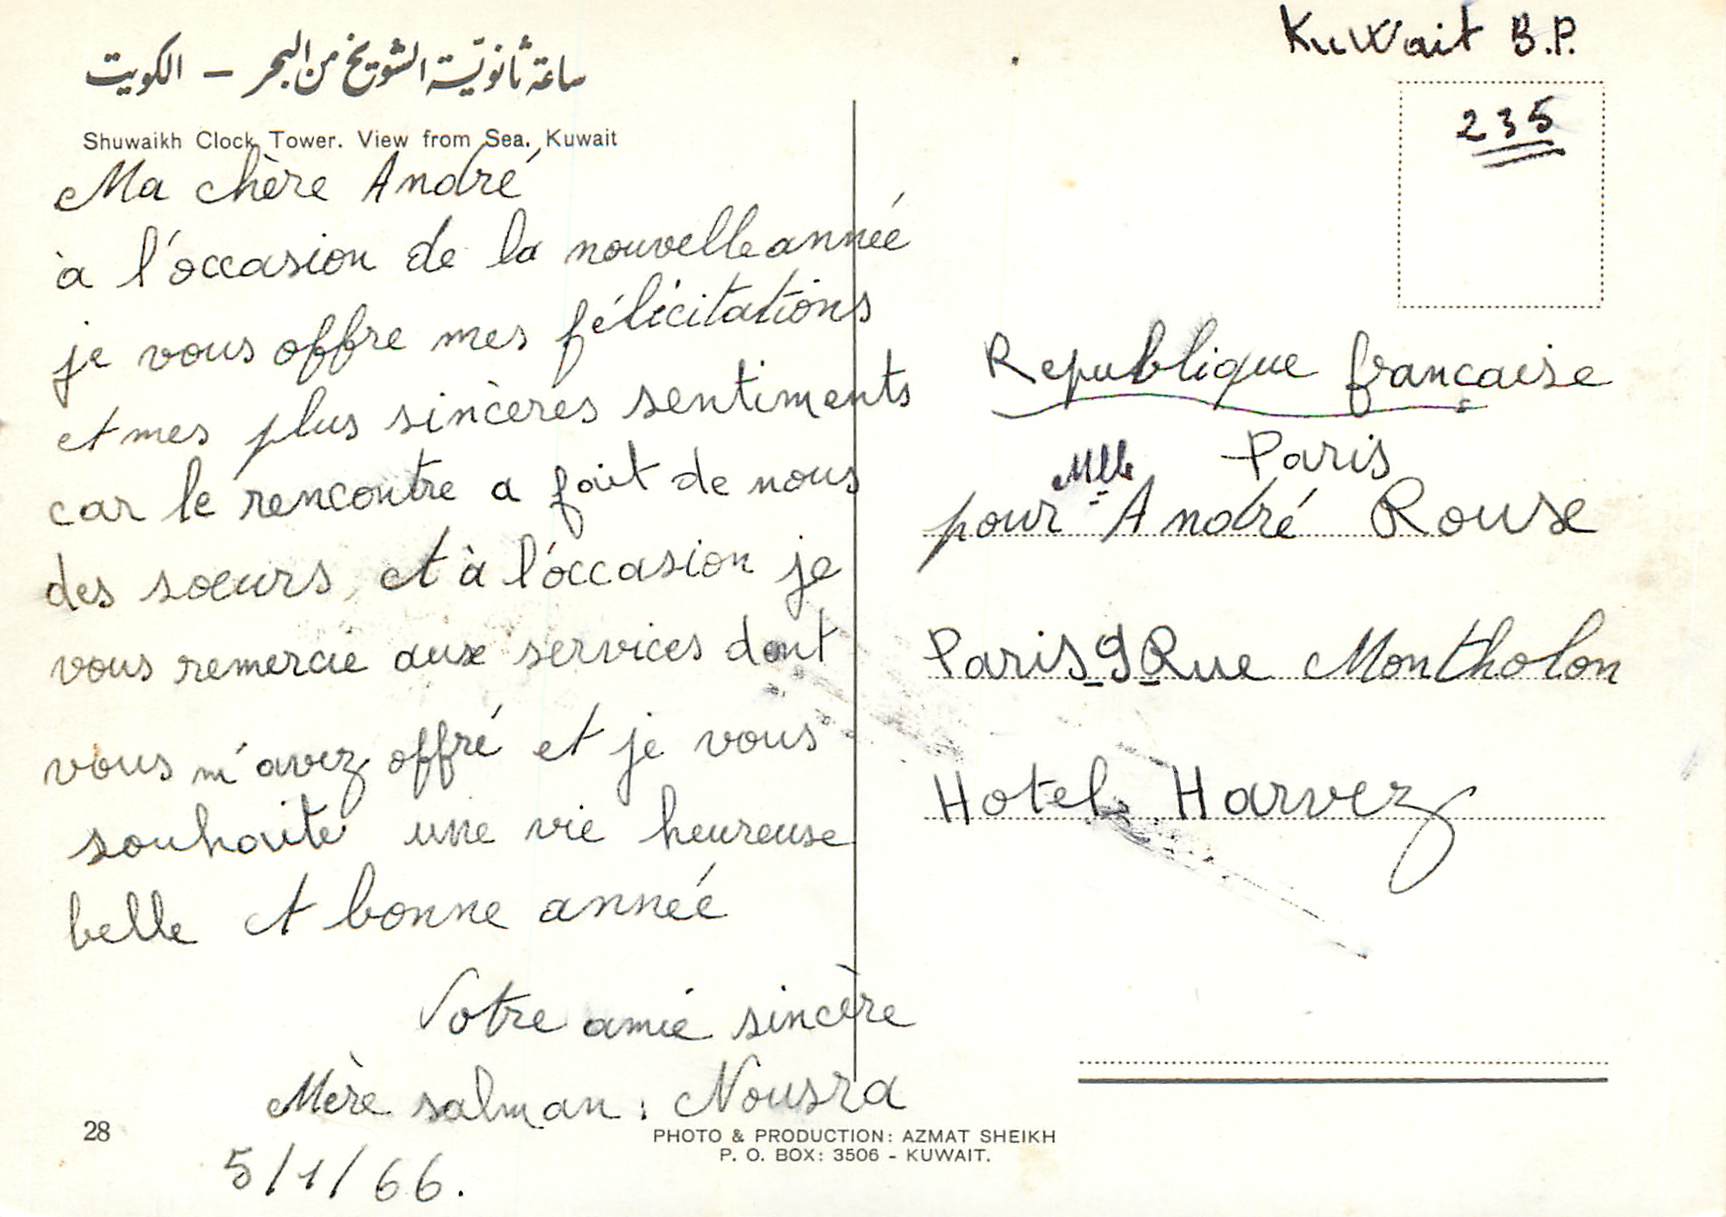 ساعة ثانوية الشويخ من البحر – الكويت
Shuwaikh Clock Tower. View from Sea. Kuwait
Ma chère André
à l'occasion de la nouvelle année
je vous offre mes félicitations
et mes plus sincères sentiments
car le rencontre a fait de nous
des soeurs, et à l'occasion je
vous remercie aux services dont
vous m'avez offré et je vous
souhaite une vie heureuse
belle et bonne année
Votre amie sincère
Mère salman : Nousra
5/1/66.
28
PHOTO & PRODUCTION: AZMAT SHEIKH
P. O. BOX: 3506 - KUWAIT.
KuWait B.P.
235
Republique française
Paris
pour Mlle André Rouse
Paris 9 Rue Montholon
Hotel Harvez